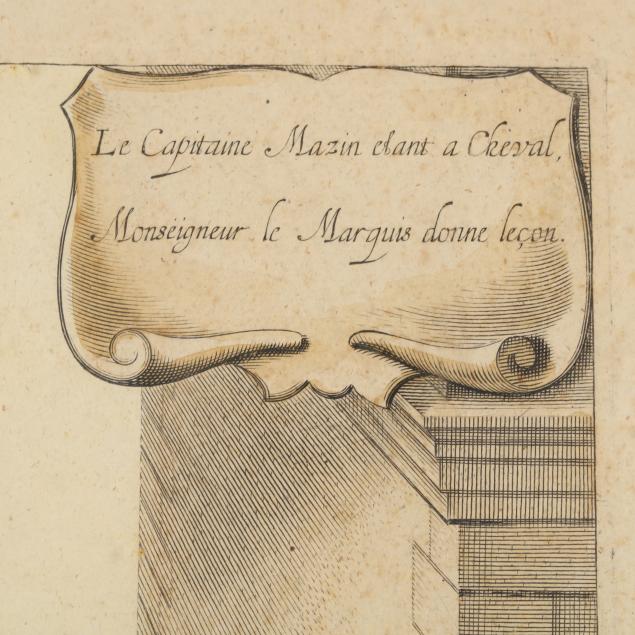 Le Capitaine Mazin etant a Cheval,
Monseigneur le Marquis donne leçon.